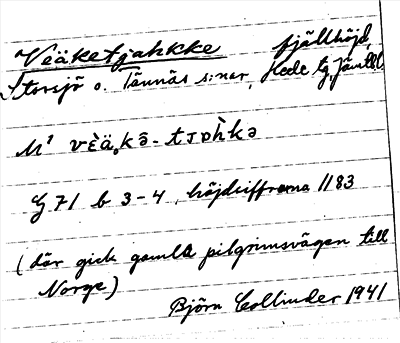 Veäketjahkke fjällhöjd,
Storsjö o. Tännäs s:nar, Hede tg, Jämtl.
M¹ vὲä̭kə̂-tᴊɒh̀kə
G 71 b 3-4, höjdsiffrorna 1183
(där gick gamla pilgrimsvägen till
Norge)
Björn Collinder 1941